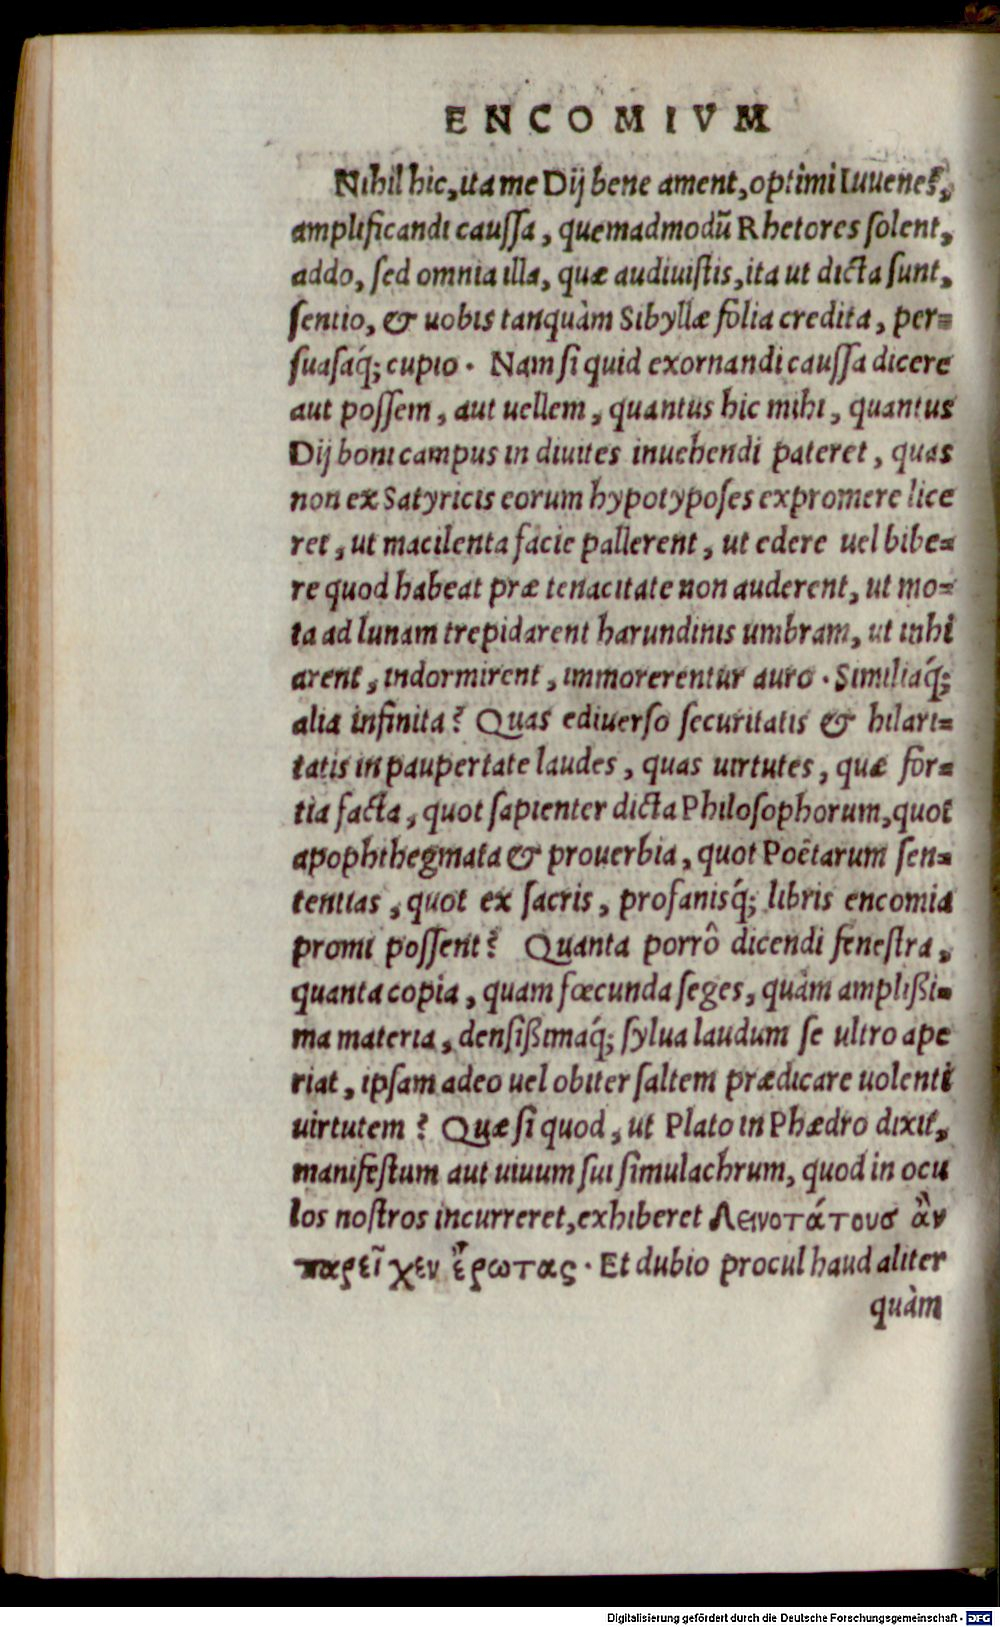 ENCOMIVM
Nihil hic, ita me Dij bene ament, optimi Iuuenes,
amplificandi caussa, quemadmodū Rhetores solent,
addo, sed omnia illa, quæ audiuistis, ita ut dicta sunt,
sentio, & uobis tanquàm Sibyllæ folia credita, per=
suasaq́; cupio. Nam si quid exornandi caussa dicere
aut possem, aut uellem, quantus hic mihi, quantus
Dij boni campus in diuites inuehendi pateret, quas
non ex Satyricis eorum hypotyposes expromere lice
ret, ut macilenta facie pallerent, ut edere uel bibe=
re quod habeat præ tenacitate non auderent, ut mo=
ta ad lunam trepidarent harundinis umbram, ut inhi
arent, indormirent, immorerentur auro. Similiaq́;
alia infinita? Quas ediuerso securitatis & hilari=
tatis in paupertate laudes, quas uirtutes, quæ for=
tia facta, quot sapienter dicta Philosophorum, quot
apophthegmata & prouerbia, quot Poëtarum sen=
tentias, quot ex sacris, profanisq́; libris encomia
promi possent? Quanta porrô dicendi fenestra,
quanta copia, quam fœcunda seges, quàm amplißi=
ma materia, densißimaq́; sylua laudum se ultro ape
riat, ipsam adeo uel obiter saltem prædicare uolenti
uirtutem? Quæ si quod, ut Plato in Phædro dixit,
manifestum aut uiuum sui simulachrum, quod in ocu
los nostros incurreret, exhiberet Λεινοτάτους ἂν
παρεῖχεν ἔρωτας. Et dubio procul haud aliter
quàm
Digitalisierung gefördert durch die Deutsche Forschungsgemeinschaft - DFG